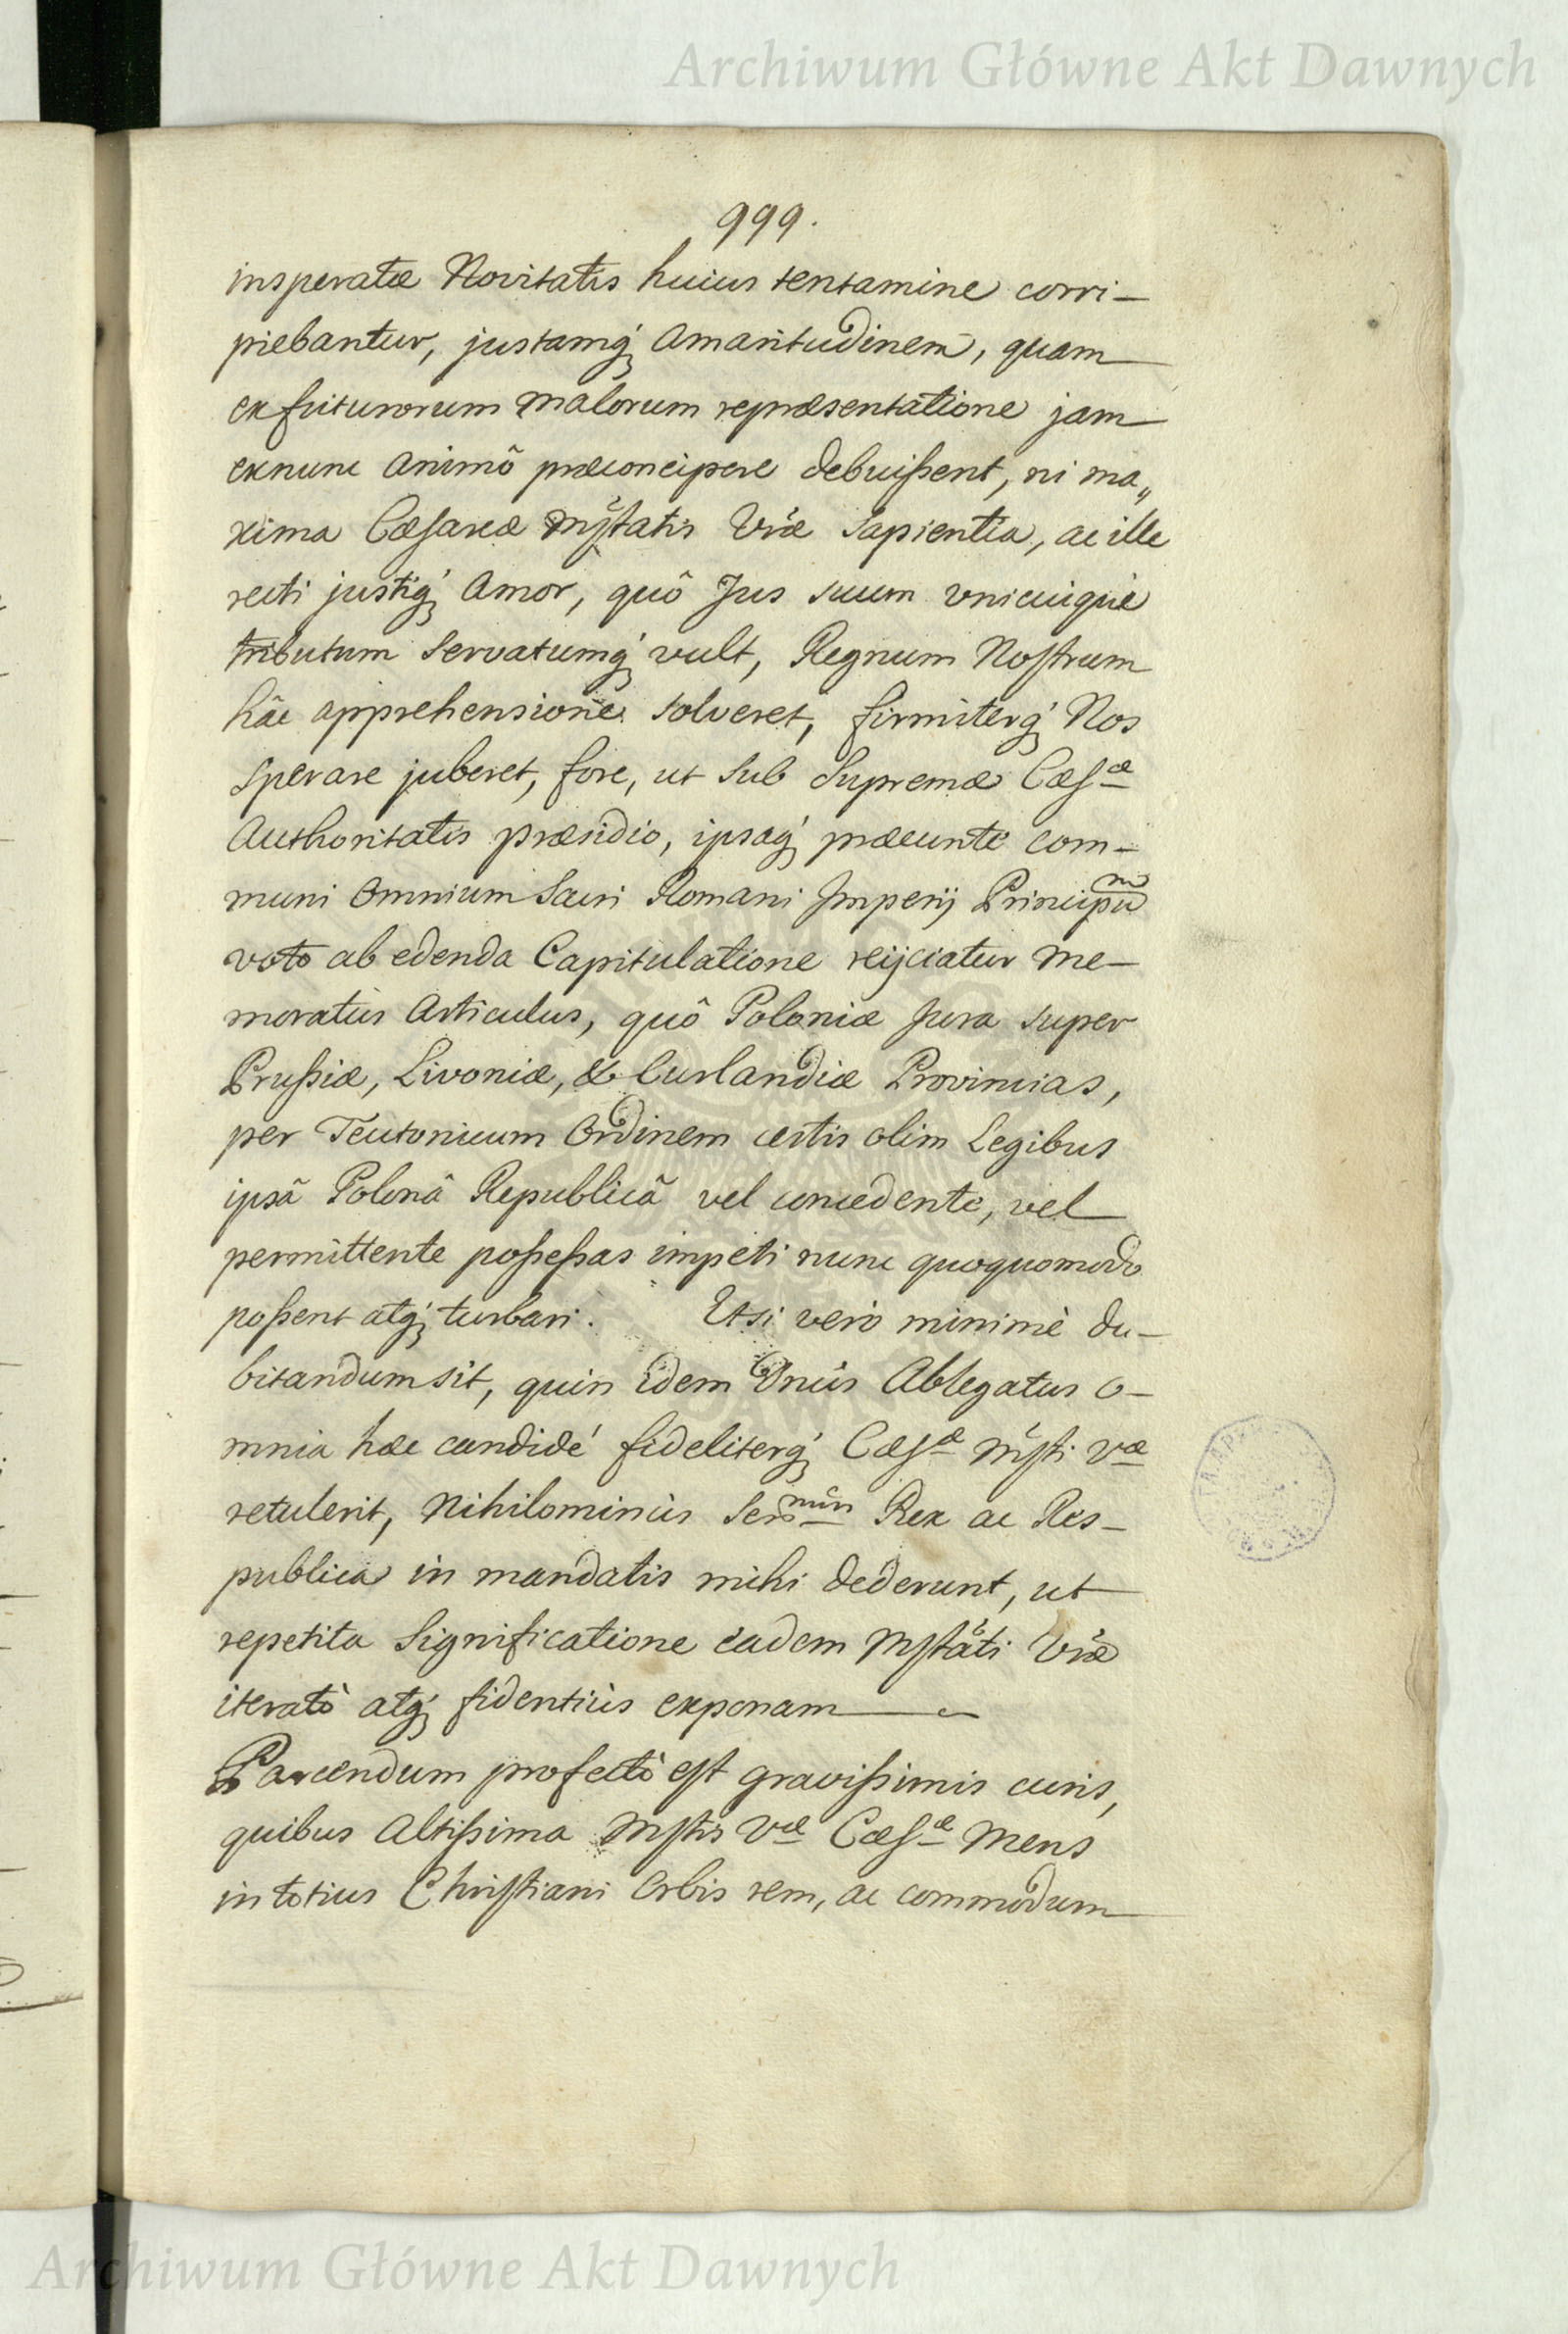 Archiwum Główne Akt Dawnych
999.
insperatæ Novitatis huius tentamine corri–
piebantur, justamq́; Amaritudinem, quam
ex futurorum malorum repræsentatione jam
exnunc animô præconcipere debuißent, ni ma„
xima Cæsareæ Mŷstatis Vr̃æ Sapientia, ac ille
recti justiq́; Amor, quô Jus suum vnicuiquè
tributum servatumq́; vult, Regnum Nostrum
hâc apprehensione solveret, firmiterq́; Nos
sperare juberet, fore, ut sub Supremæ Cæsᵃᵉ
Authoritatis præsidio, ipsaq́; præeunte com–
muni Omnium Sacri Romani Imperij Principũᵐ
voto ab edenda Capitulatione reijciatur me–
moratus Articulus, quô Poloniæ Jura super
Prußiæ, Livoniæ, & Curlandiæ Provincias,
per Teutonicum Ordinem certis olim Legibus
ipsâ Polonâ Republicâ vel concedente, vel
permittente poßeßas impeti nunc quoquomodo
poßent atq́; turbari. Etsi verò minimè du–
bitandum sit, quin idem Dnũs Ablegatus o–
mnia hæc candidé fideliterq́; Cæsᵃᵉ Mr̃sti Vᵃᵉ
retulerit, Nihilominùs Serᵐᵘˢ Rex ac Res–
publica in mandatis mihi dederunt, ut
repetita Significatione eadem Mstãti Vr̃æ
iteratò atq́; fidentiùs exponam
Parcendum profectò est gravißimis curis,
quibus Altißima Mstis Vᵃᵉ Cæsᵃᵉ Mens
in totius Christiani Orbis rem, ac commodum
Archiwum Główne Akt Dawnych